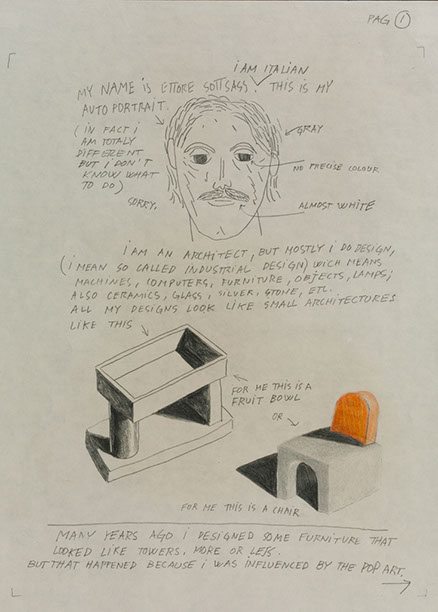 PAG 1
I AM ITALIAN
MY NAME IS ETTORE SOTTSASS. THIS IS MY
AUTOPORTRAIT.
(IN FACT I
AM TOTALY
DIFFERENT
BUT I DON'T
KNOW WHAT
TO DO)
SORRY.
GRAY
NO PRECISE COLOUR
ALMOST WHITE
I AM AN ARCHITECT, BUT MOSTLY I DO DESIGN,
(I MEAN SO CALLED INDUSTRIAL DESIGN) WICH MEANS
MACHINES, COMPUTERS, FURNITURE, OBJECTS, LAMPS;
ALSO CERAMICS, GLASS, SILVER, STONE, ETC.
ALL MY DESIGNS LOOK LIKE SMALL ARCHITECTURES
LIKE THIS
FOR ME THIS IS A
FRUIT BOWL
OR
FOR ME THIS IS A CHAIR
MANY YEARS AGO I DESIGNED SOME FURNITURE THAT
LOOKED LIKE TOWERS, MORE OR LESS.
BUT THAT HAPPENED BECAUSE I WAS INFLUENCED BY THE POP ART.